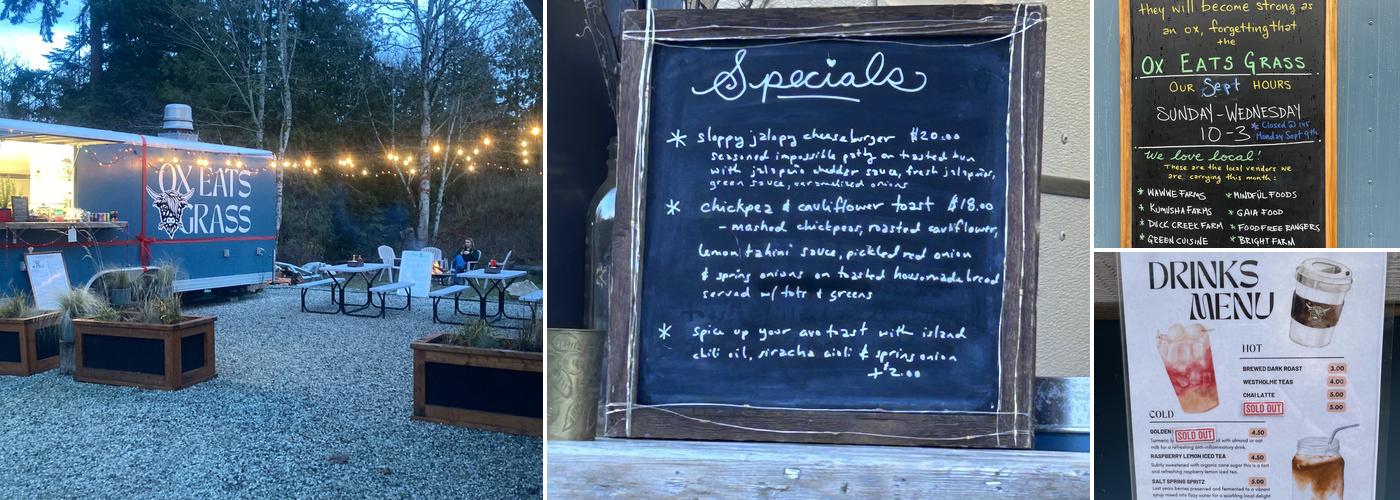 OX EATS
GRASS
Specials
* sloppy jalopy cheeseburger $20.00
seasoned impossible patty on toasted bun
with jalapeño cheddar sauce, fresh jalapeños,
green sauce, caramelized onions
* chickpea & cauliflower toast $18.00
- mashed chickpeas, roasted cauliflower,
lemon tahini sauce, pickled red onion
& spring onions on toasted housemade bread
served w/ tots & greens
* spice up your avo toast with island
chili oil, siracha aioli & spring onion
+$2.00
they will become strong as
an ox, forgetting that
the
OX EATS GRASS
OUR Sept HOURS
SUNDAY-WEDNESDAY
10-3 * Closed @ 145
Monday Sept 9th
We love local!
These are the local vendors we
are carrying this month:
* WAWWE FARMS * MINDFUL FOODS
* KUMUSHA FARMS * GAIA FOOD
* DUCK CREEK FARM * FOOD FREE RANGERS
* GREEN CUISINE * BRIGHT FARM
DRINKS
MENU
HOT
BREWED DARK ROAST 3.00
WESTHOLME TEAS 4.00
CHAI LATTE 5.00
SOLD OUT 5.00
COLD
GOLDEN SOLD OUT 4.50
Turmeric d with almond or oat
milk for a refreshing anti-inflammatory drink.
RASPBERRY LEMON ICED TEA 4.50
Subtly sweetened with organic cane sugar this is a tart
and refreshing raspberry lemon iced tea.
SALT SPRING SPRITZ 5.00
Last years berries preserved and fermented to a vibrant
syrup mixed into fizzy water for a sparkling local delight